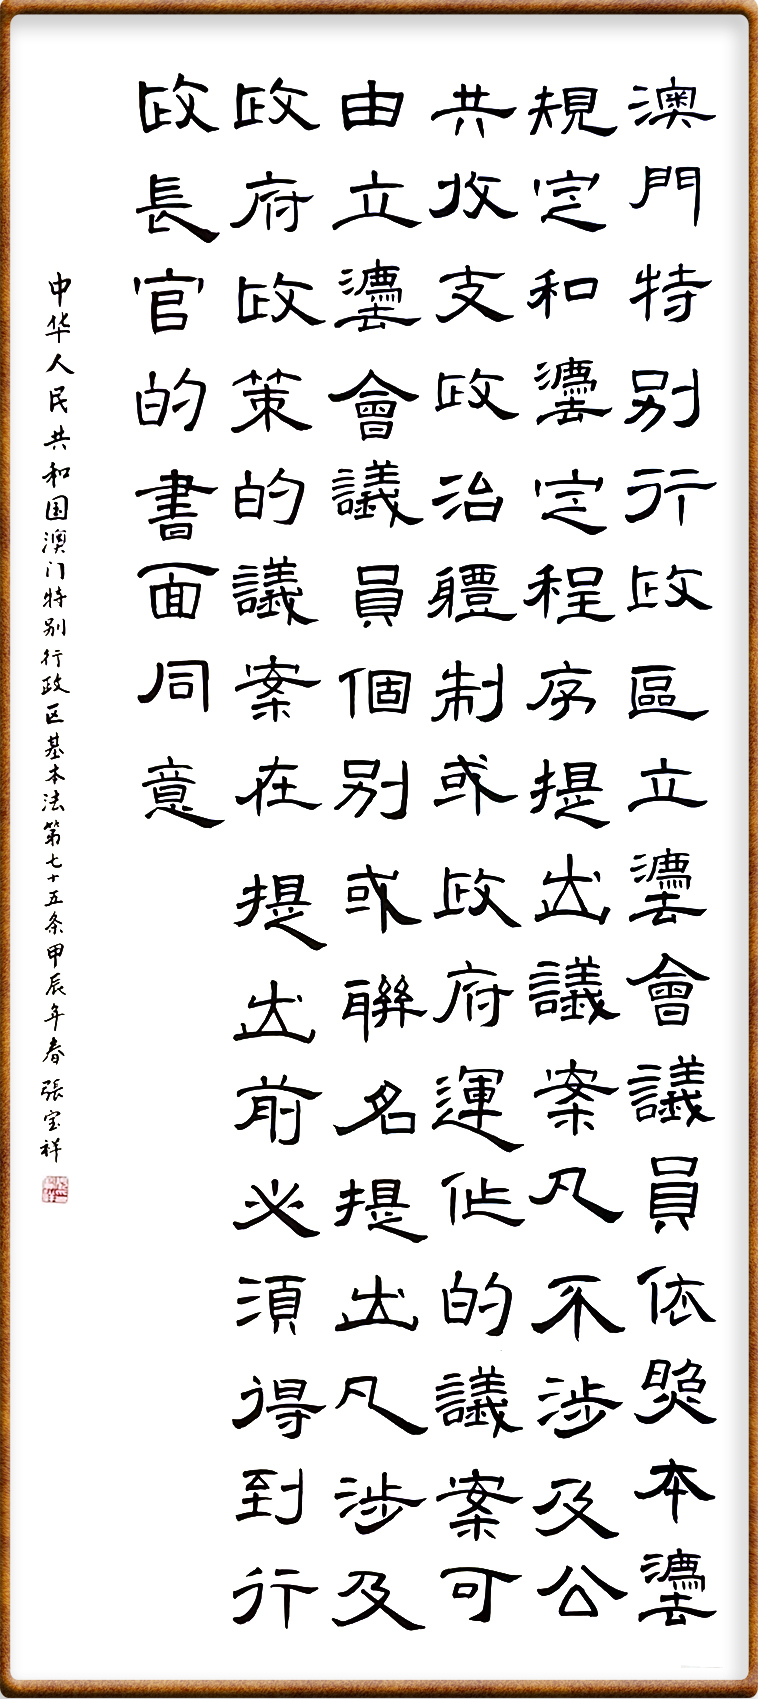 澳門特别行政區立灋會議員依照本灋
規定和灋定程序提出議案凡不涉及公
共收支政治體制或政府運作的議案可
由立灋會議員個别或聯名提出凡涉及
政府政策的議案在提出前必須得到行
政長官的書面同意
中华人民共和国澳门特别行政区基本法第七十五条甲辰年春張宝祥